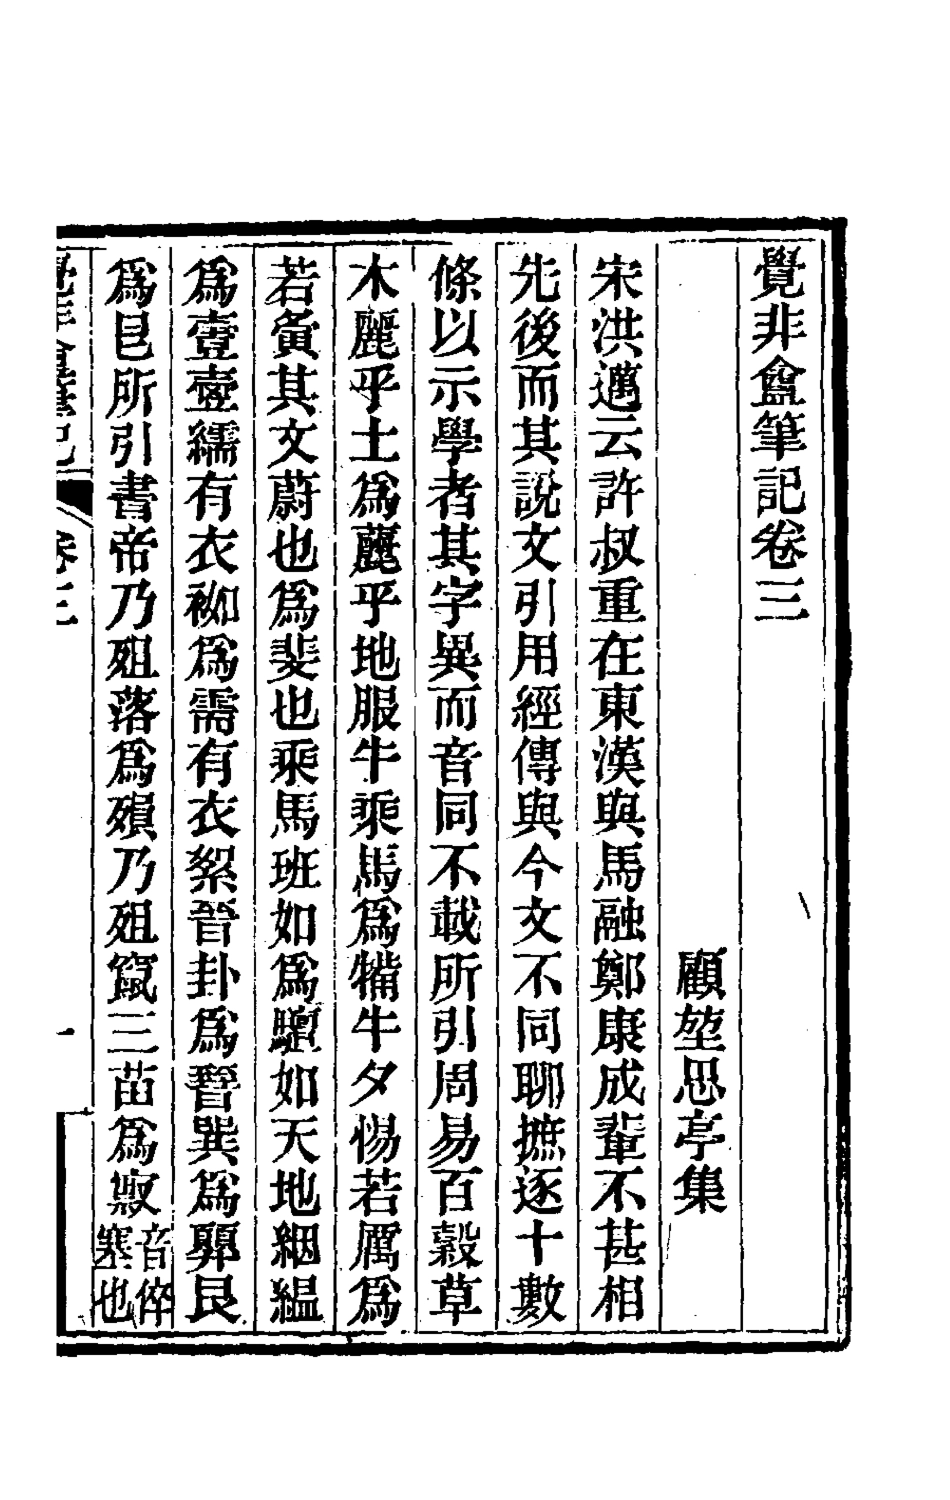 覺非盦筆記卷三
顧堃思亭集
宋洪邁云許叔重在東漢與馬融鄭康成輩不甚相
先後而其說文引用經傳與今文不同聊摭逐十數
條以示學者其字異而音同不載所引周易百穀草
木麗乎土爲䕻乎地服牛乘馬爲犕牛夕惕若厲爲
若夤其文蔚也爲斐也乘馬班如爲驙如天地絪緼
爲壹壺繻有衣袽爲需有衣絮晉卦爲㬜巽爲顨艮
爲皀所引書帝乃殂落爲殞乃殂竄三苗爲㝮音倅塞也
覺非盦筆記 卷三 一